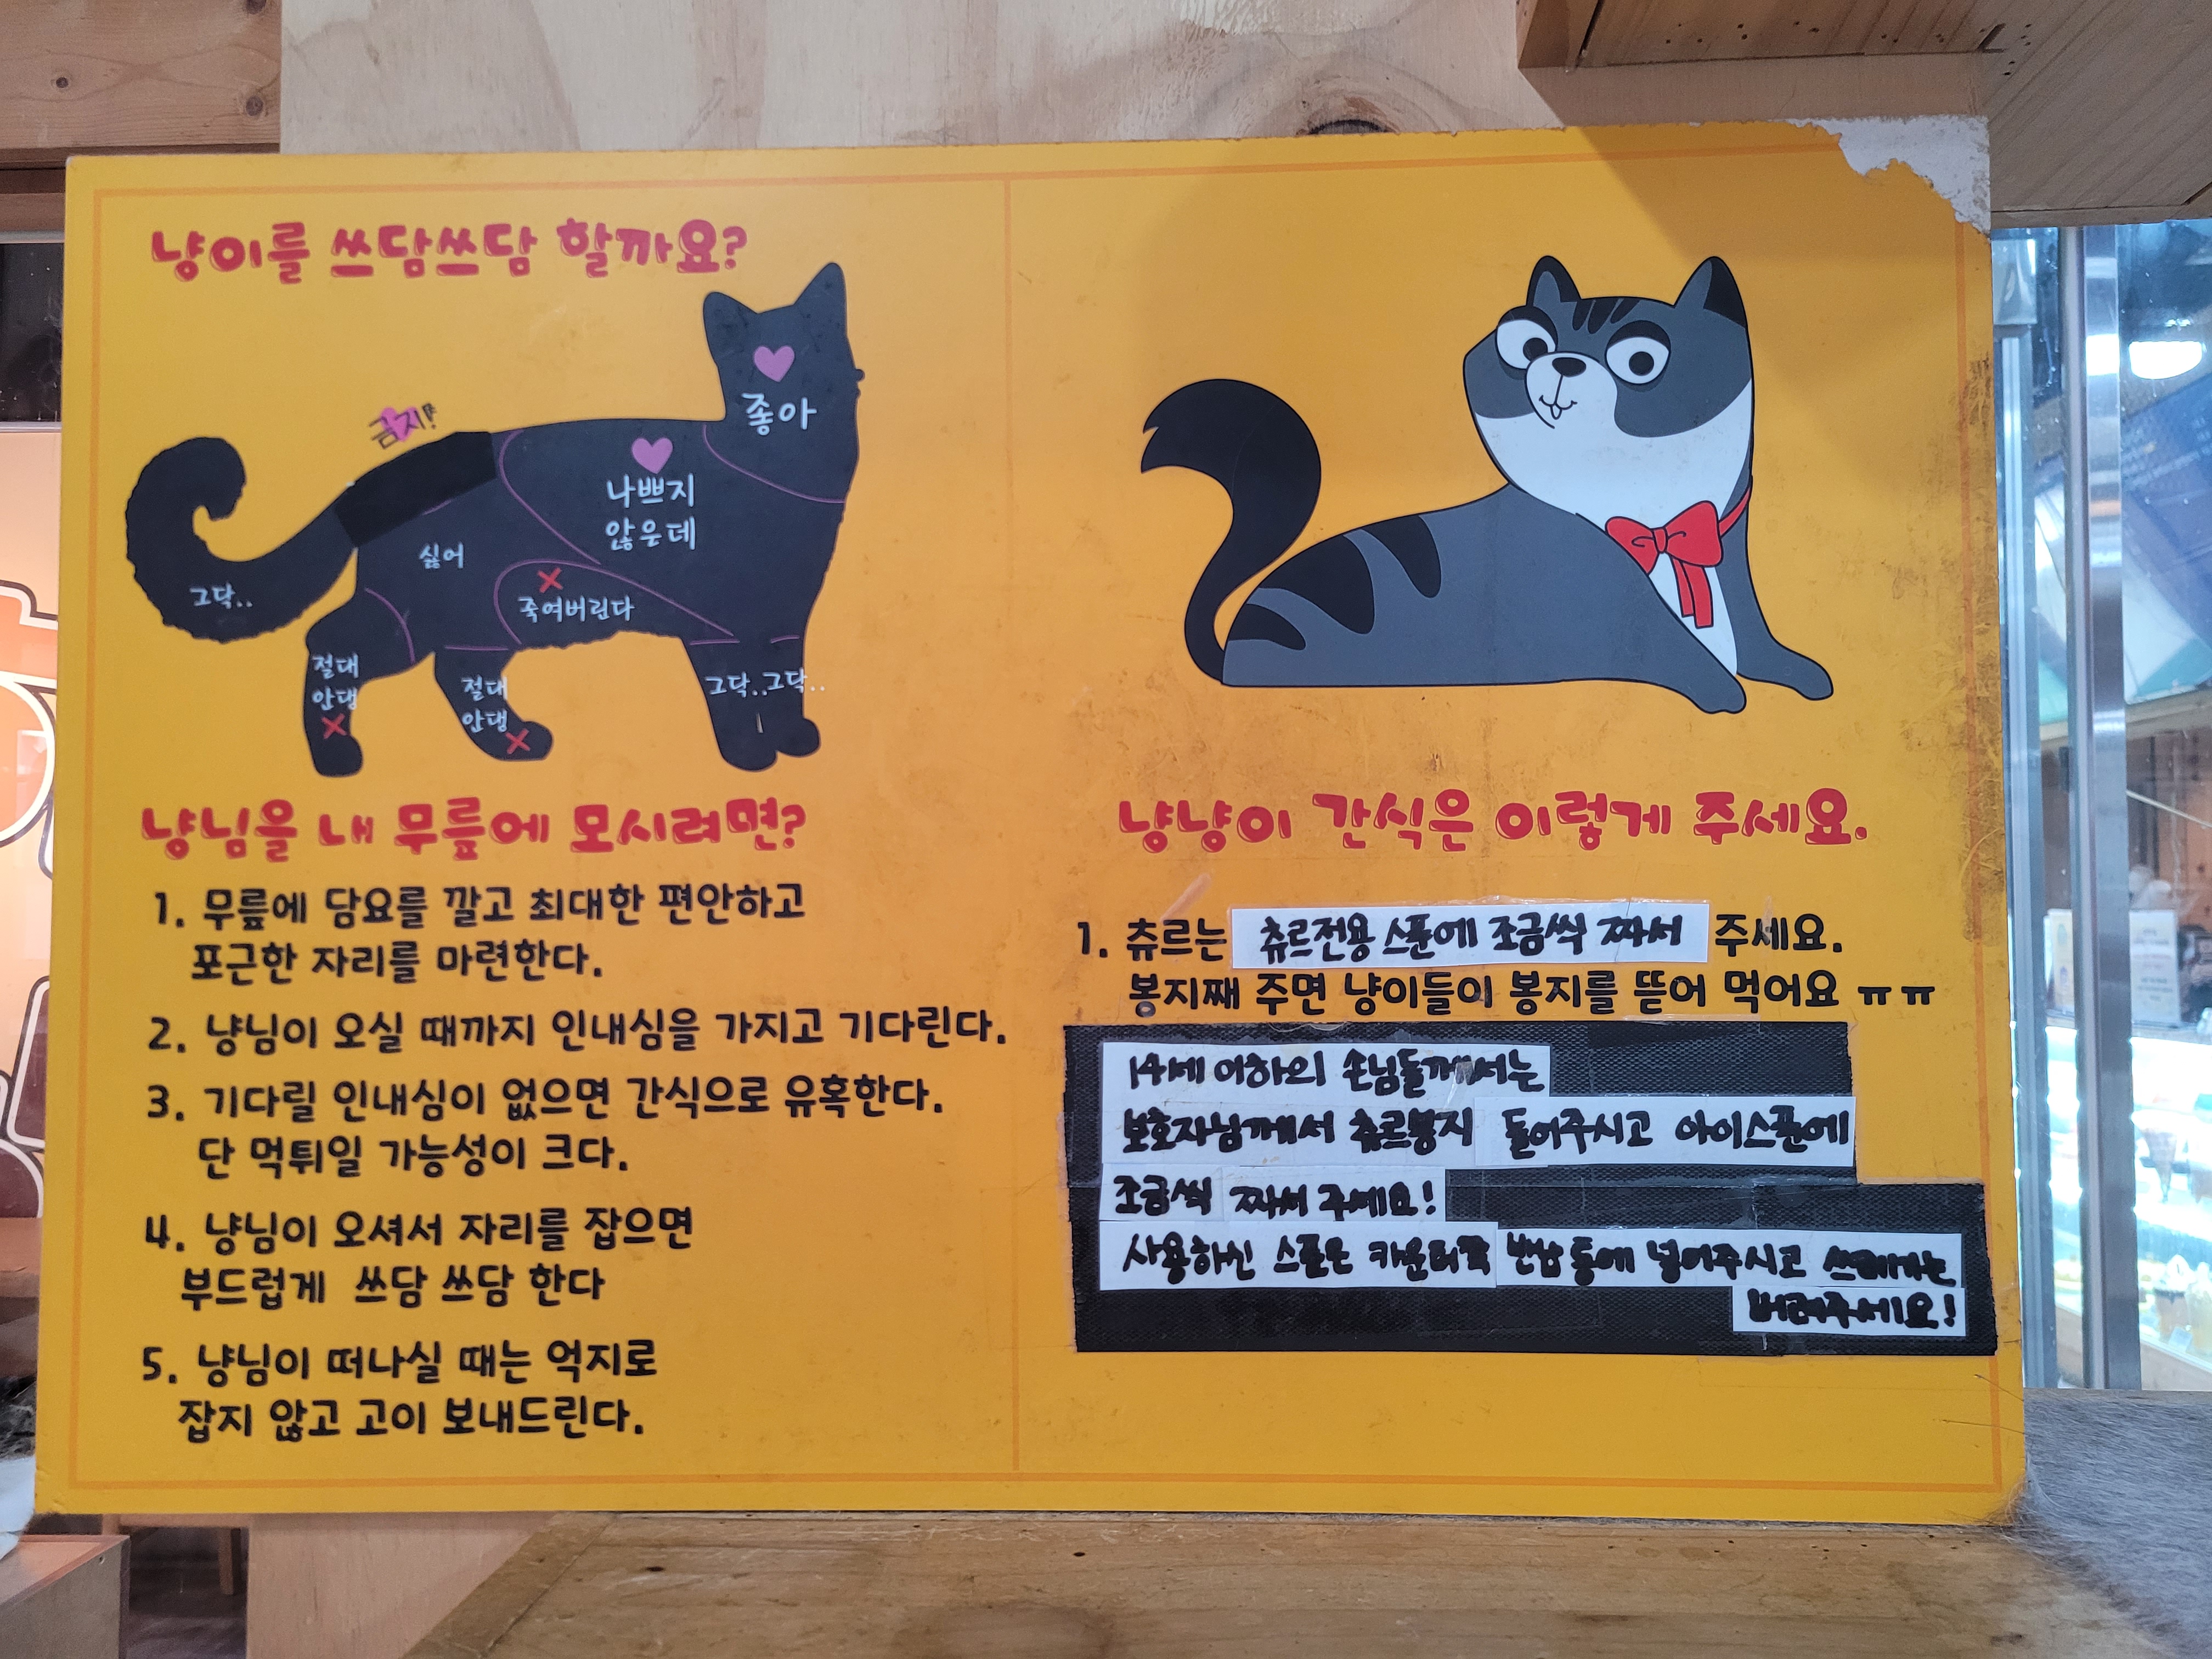 냥이를 쓰담쓰담 할까요?
좋아
금지!!
나쁘지
않은데
싫어
그닥..
죽여버린다
절대
안댐
절대
안댐
그닥..그닥..
냥님을 내 무릎에 모시려면?
1. 무릎에 담요를 깔고 최대한 편안하고
포근한 자리를 마련한다.
2. 냥님이 오실 때까지 인내심을 가지고 기다린다.
3. 기다릴 인내심이 없으면 간식으로 유혹한다.
단 먹튀일 가능성이 크다.
4. 냥님이 오셔서 자리를 잡으면
부드럽게 쓰담 쓰담 한다
5. 냥님이 떠나실 때는 억지로
잡지 않고 고이 보내드린다.
냥냥이 간식은 이렇게 주세요.
1. 츄르는 츄르전용 스푼에 조금씩 짜서 주세요.
봉지째 주면 냥이들이 봉지를 뜯어 먹어요 ㅠㅠ
14세 이하의 손님들께서는
보호자님께서 츄르봉지 들어주시고 아이스푼에
조금씩 짜서 주세요!
사용하신 스푼은 카운터쪽 반납통에 넣어주시고 쓰레기는
버려주세요!